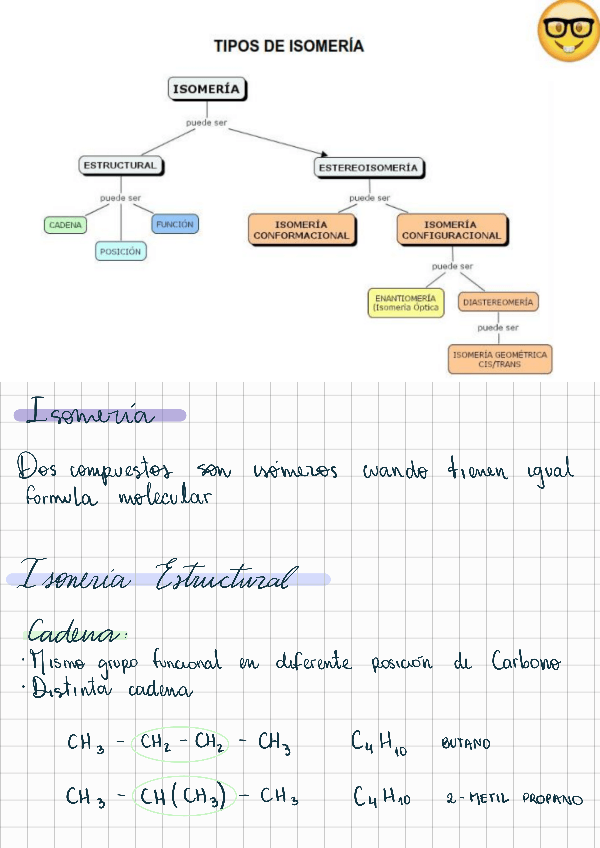 TIPOS DE ISOMERÍA
ISOMERÍA
puede ser
ESTRUCTURAL
ESTEREOISOMERÍA
puede ser
puede ser
CADENA
FUNCIÓN
POSICIÓN
ISOMERÍA
CONFORMACIONAL
ISOMERÍA
CONFIGURACIONAL
puede ser
ENANTIOMERÍA
(Isomería Óptica
DIASTEREOMERÍA
puede ser
ISOMERÍA GEOMÉTRICA
CIS/TRANS
Isomería
Dos compuestos son isómeros cuando tienen igual
formula molecular
Isomeria Estructural
Cadena:
· Mismo grupo funcional en diferente posición de Carbono
· Distinta cadena
CH₃ - CH₂ - CH₂ - CH₃ C₄H₁₀ BUTANO
CH₃ - CH(CH₃) - CH₃ C₄H₁₀ 2-METIL PROPANO